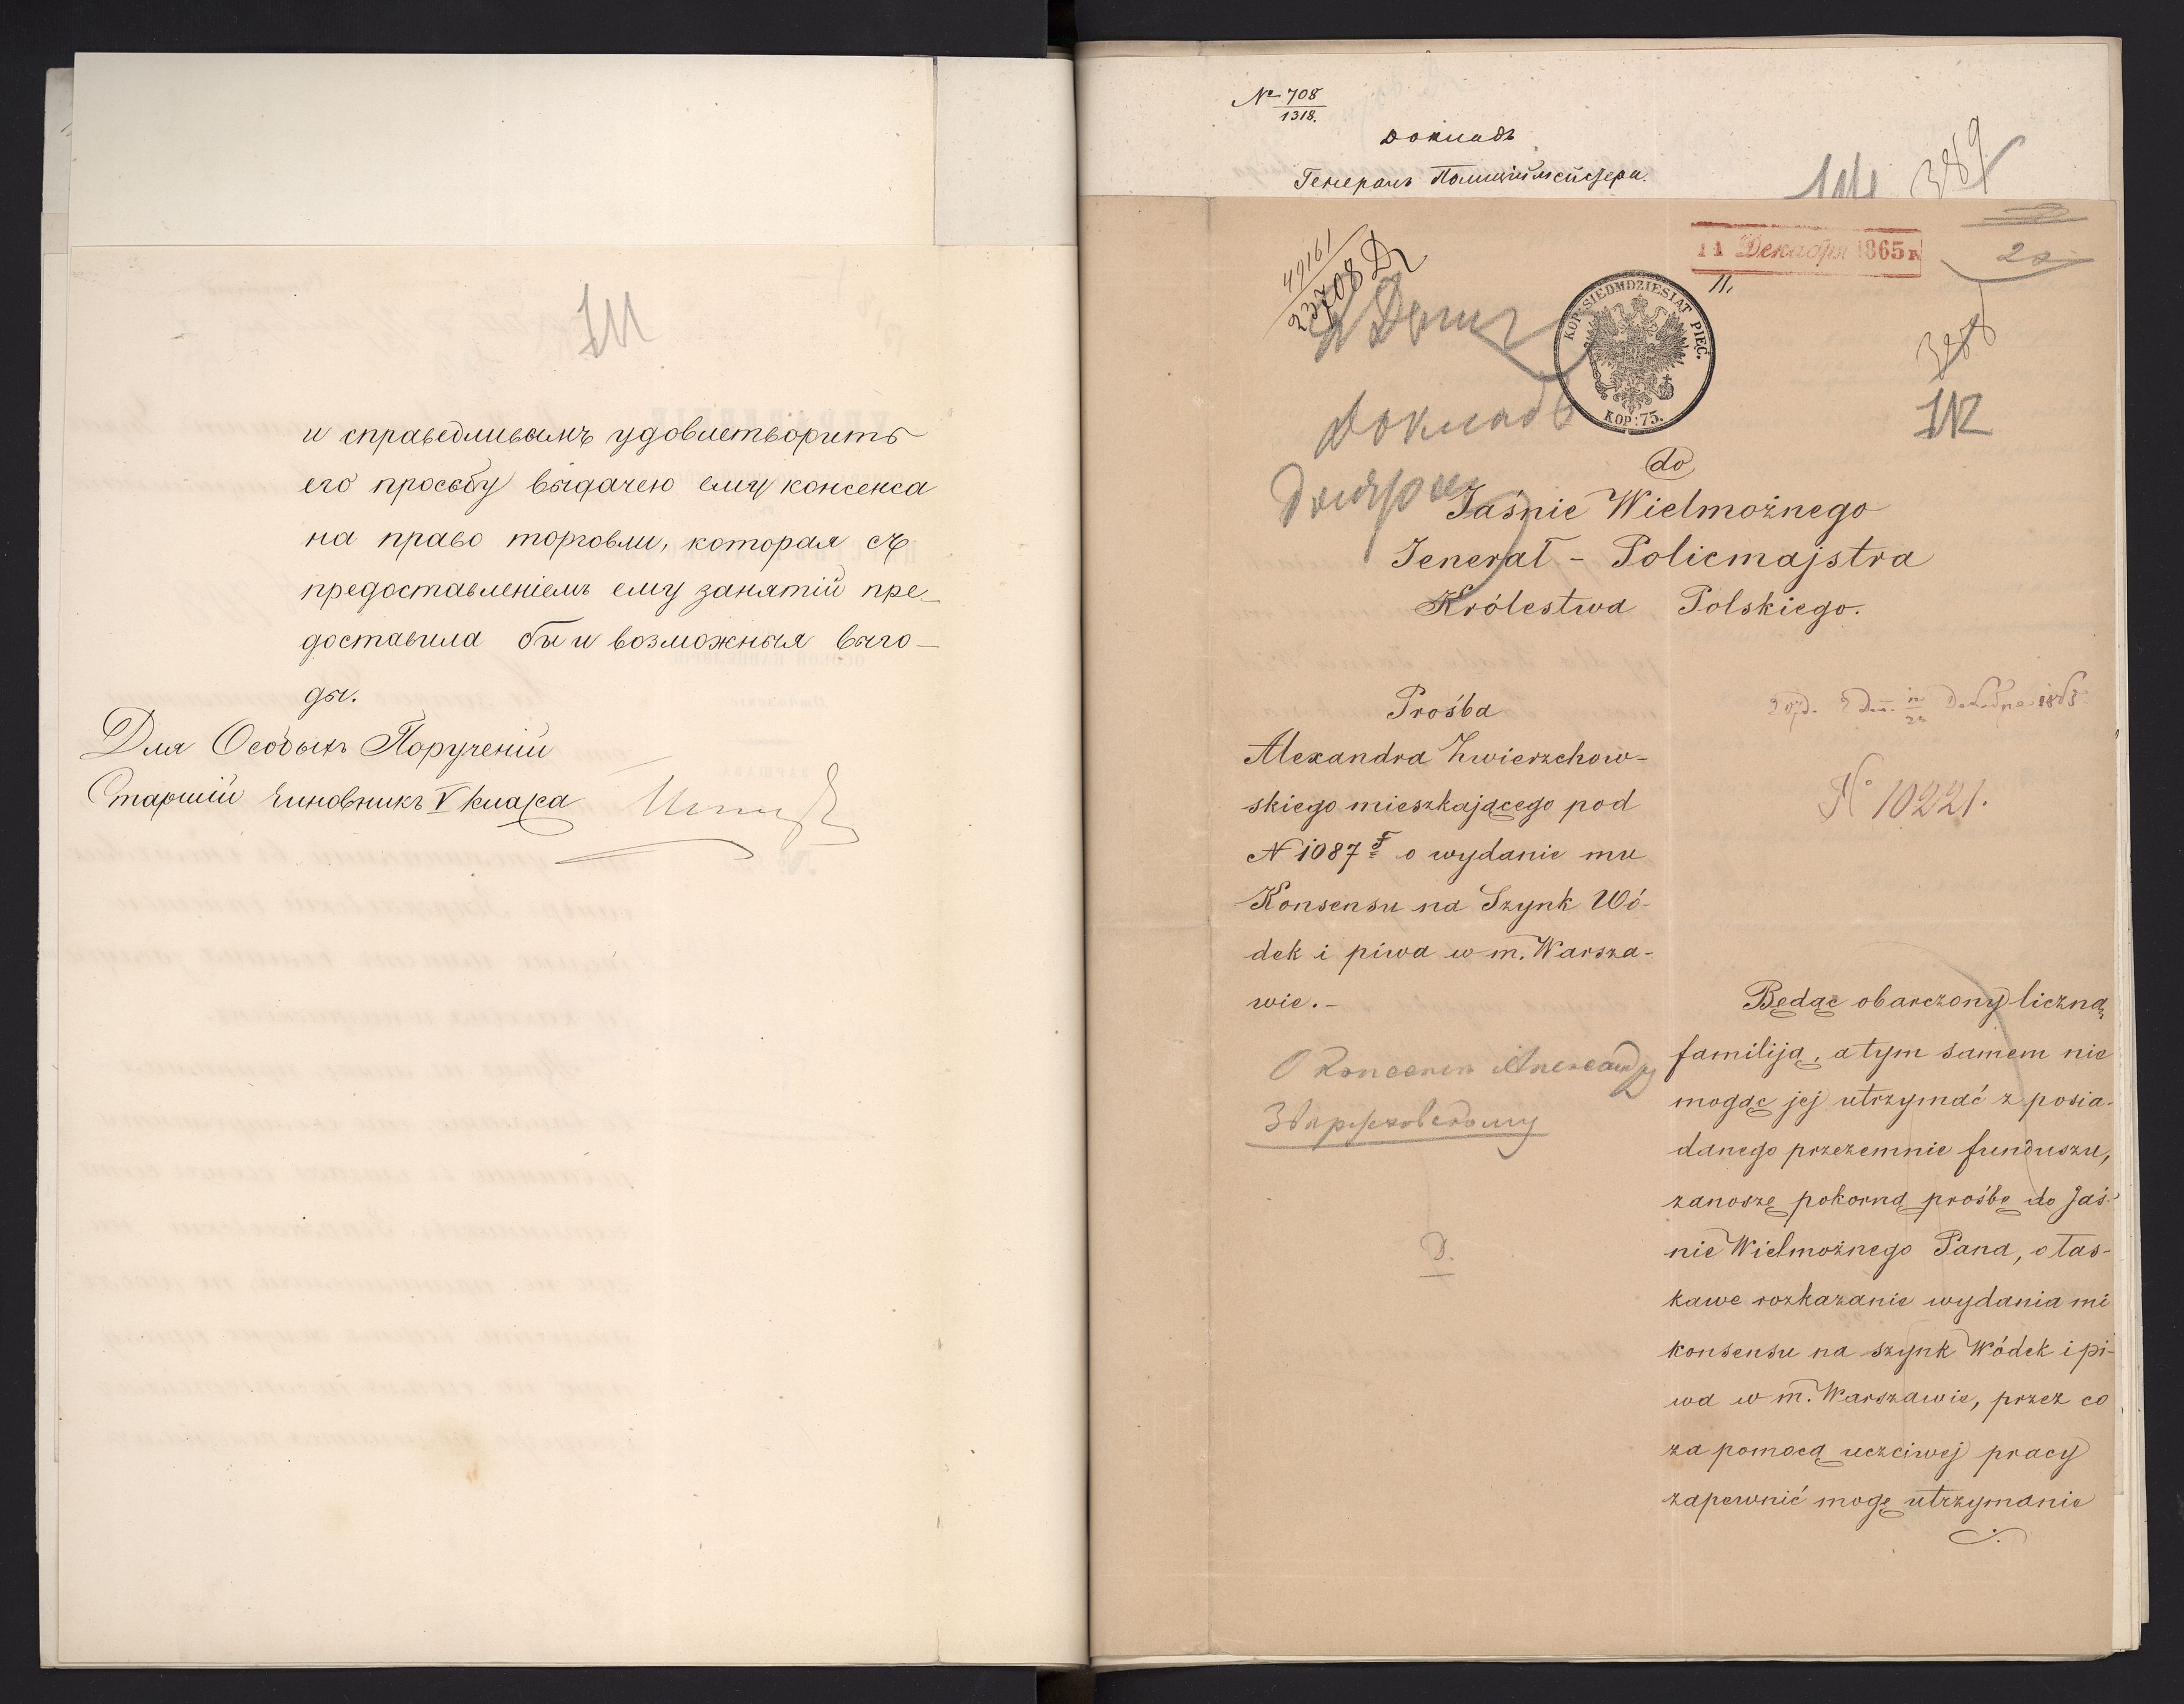 111
и справедливымъ удовлетворить
его просьбу выдачею ему консенса
на право торговли, которая съ
предоставленіемъ ему занятій пре-
доставила бы и возможныя выго-
ды.
Для Особыхъ Порученій
Старшій Чиновникъ V класса
№ 708
1318.
Докладъ
Генералъ Полицiймейстера.
389
49161
23708
11 Декабря 1865 г.
11.
KOP. SIEDMDZIESIĄT PIĘĆ.
KOP: 75.
388
112
Докладъ
do
Jaśnie Wielmożnego
Jenerał - Policmajstra
Królestwa Polskiego.
Prośba
Alexandra Zwierzchow-
skiego mieszkającego pod
N 1087 F o wydanie mu
Konsensu na Szynk Wó-
dek i piwa w m. Warsza-
wie.-
№ 10221.
Będąc obarczony liczną
familiją, a tym samem nie
mogąc jej utrzymać z posia-
danego przezemnie funduszu,
zanoszę pokorną prośbę do Jaś-
nie Wielmożnego Pana, o łas-
kawe rozkazanie wydania mi
konsensu na szynk Wódek i pi-
wa w m. Warszawie, przez co
za pomocą uczciwej pracy
zapewnić mogę utrzymanie
О консенсѣ Александру
Звержховскому